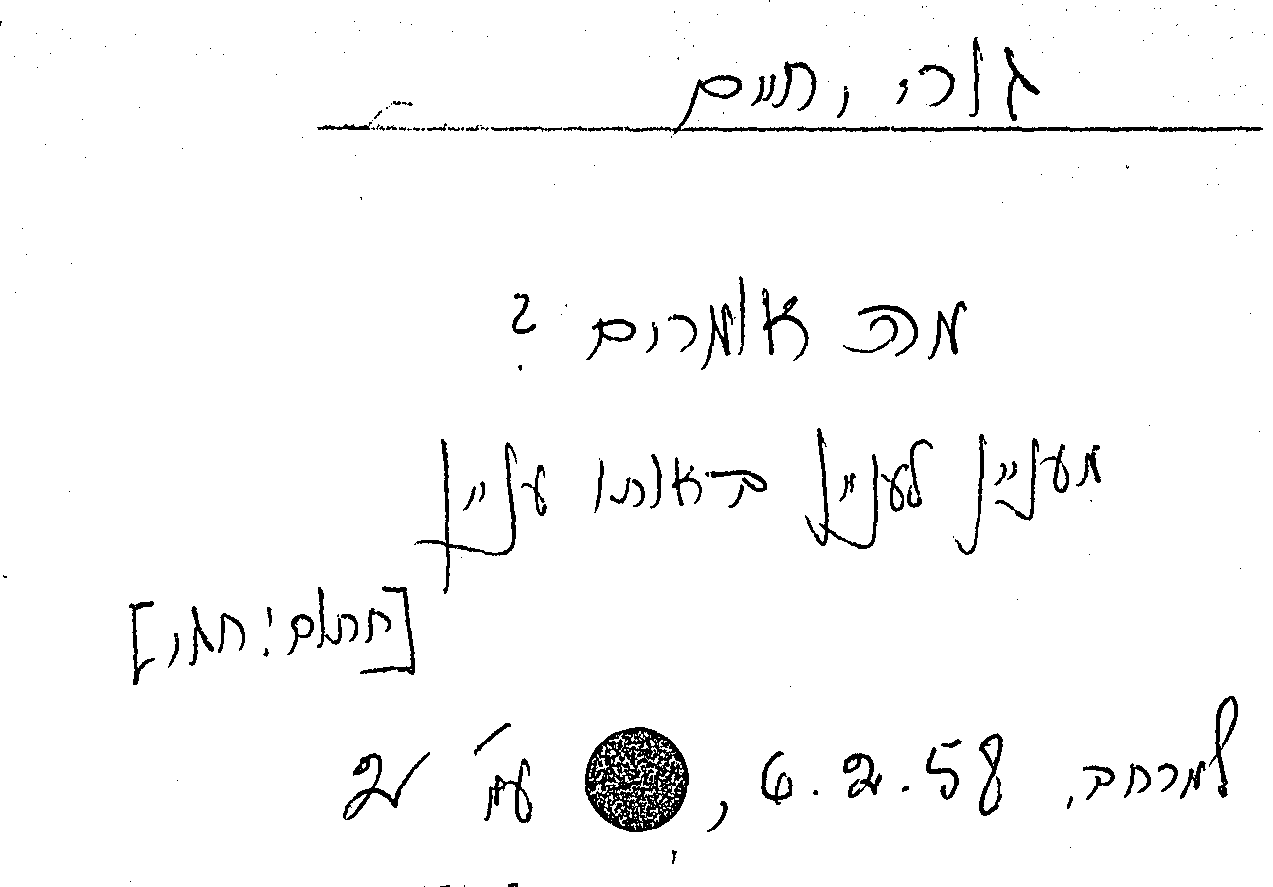 גורי, חיים
מה אומרים?
מעניין לעניין באותו עניין
[חתום: חגי]
למרחב, 6.2.58, עמ' 2